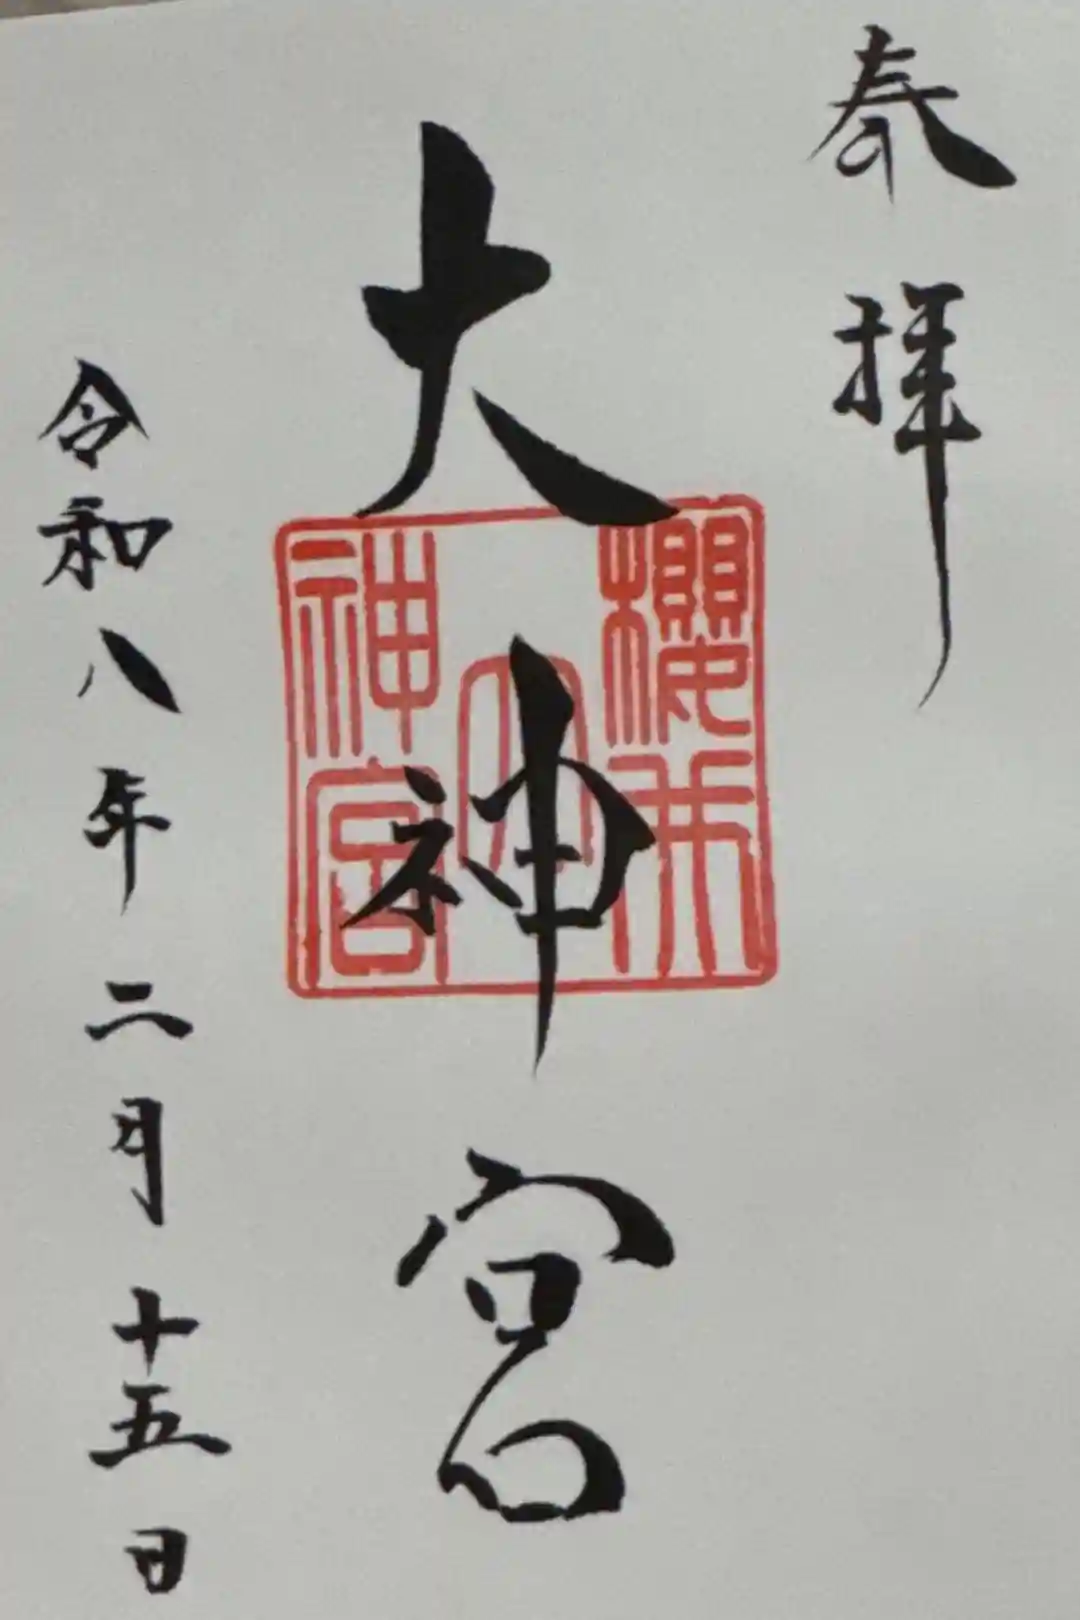 奉拝
大神宮
櫻井
大
神宮
令和八年二月十五日